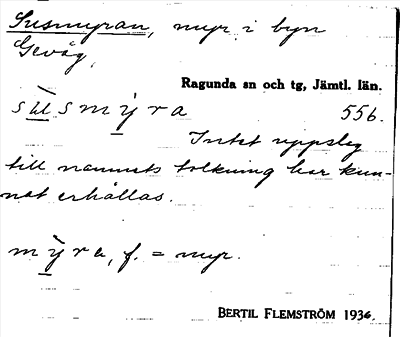 Susmyran, myr i byn
Gevåg,
Ragunda sn och tg, Jämtl. län.
sùsmy̌ra 556.
Intet uppslag
till namnets tolkning har kun-
nat erhållas.
my̌ra, f. = myr.
BERTIL FLEMSTRÖM 1936.